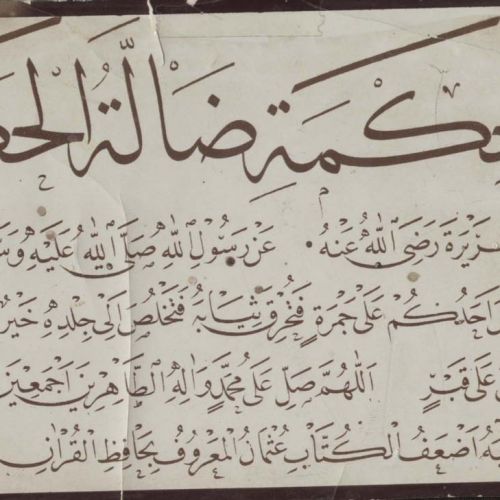 كمة ضالة الحك
ريرة رضى الله عنه عن رسول الله صلى الله عليه وس
احدكم على جمرة فتحرق ثيابه فتخلص الى جلده خير
على قبر اللهم صل على محمد واله الطاهرين اجمعين
اضعف الكتاب عثمان المعروف بحافظ القران